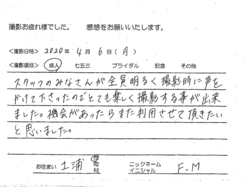 撮影お疲れ様でした。 感想をお願いいたします。
<撮影日時> 2020年 4月 6日(月)
<撮影項目> 成人 七五三 ブライダル 記念 その他
スタッフのみなさんが全員明るく撮影時に声を
かけて下さったのでとても楽しく撮影する事が出来
ました。機会があったらまた利用させて頂きたい
と思いました。
お住まい 土浦 市 ニックネーム イニシャル F.M